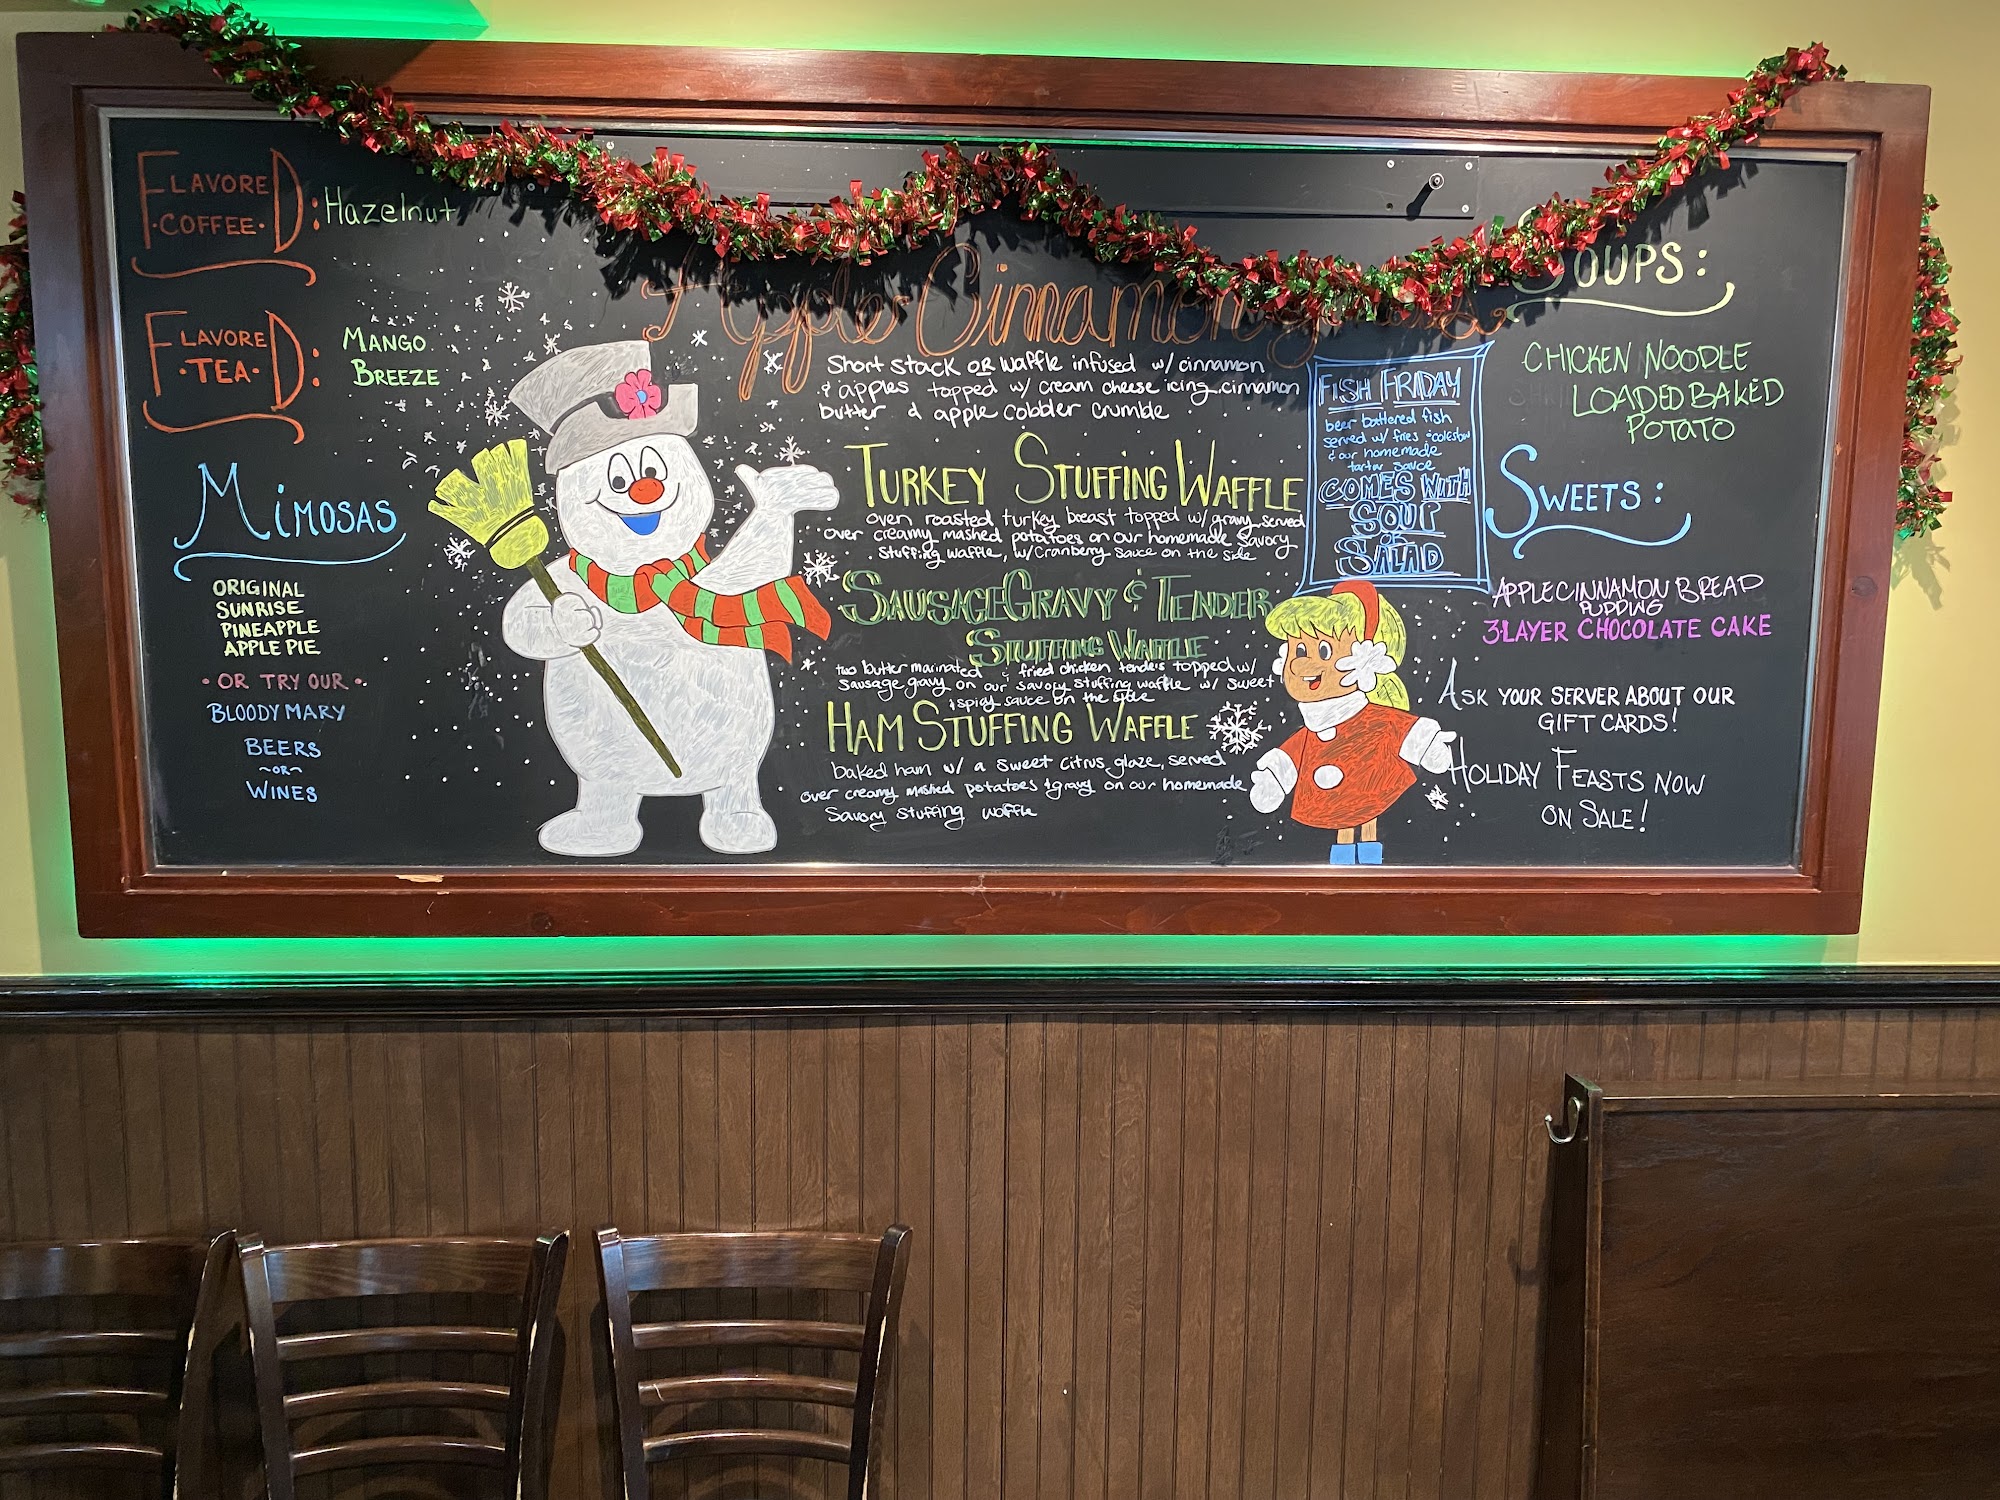 FLAVORED
·COFFEE·
: Hazelnut
FLAVORED
·TEA·
:
MANGO
BREEZE
MIMOSAS
ORIGINAL
SUNRISE
PINEAPPLE
APPLE PIE
· OR TRY OUR ·
BLOODY MARY
BEERS
~OR~
WINES
Apple Cinnamon
Short stack OR waffle infused w/ cinnamon
& apples topped w/ cream cheese icing, cinnamon
butter & apple cobbler crumble
TURKEY STUFFING WAFFLE
oven roasted turkey breast topped w/ gravy, served
over creamy mashed potatoes on our homemade savory
stuffing waffle, w/ cranberry sauce on the side
SAUSAGE GRAVY & TENDER
STUFFING WAFFLE
two butter marinated & fried chicken tenders topped w/
sausage gravy on our savory stuffing waffle w/ sweet
& spicy sauce on the side
HAM STUFFING WAFFLE
baked ham w/ a sweet citrus glaze, served
over creamy mashed potatoes & gravy on our homemade
savory stuffing waffle
FISH FRIDAY
beer battered fish
served w/ fries & coleslaw
& our homemade
tartar sauce
COMES WITH
SOUP
or
SALAD
SOUPS:
CHICKEN NOODLE
LOADED BAKED
POTATO
SWEETS:
APPLE CINNAMON BREAD
PUDDING
3-LAYER CHOCOLATE CAKE
ASK YOUR SERVER ABOUT OUR
GIFT CARDS!
HOLIDAY FEASTS NOW
ON SALE!